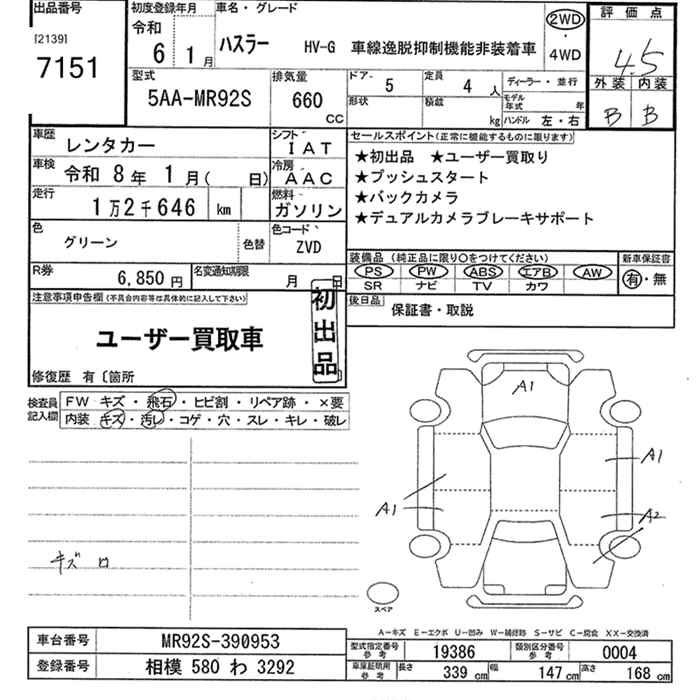 出品番号
[2139]
7151
初度登録年月
令和 6 1 月
車名・グレード
ハスラー HV-G 車線逸脱抑制機能非装着車
2WD
・
4WD
評価点
4.5
外装 内装
B B
型式
5AA-MR92S
排気量
660 CC
ドア 5
形状
定員 4 人
積載 kg
ディーラー・並行
モデル年式 年
ハンドル 左・右
車歴 レンタカー
シフト IAT
車検 令和 8 年 1 月( 日)
冷房 AAC
走行 1 万 2 千 646 km
燃料 ガソリン
色 グリーン
色替
色コード ZVD
R券 6,850 円
名変通知期限 月 日
セールスポイント(正常に機能するものに限ります)
★初出品 ★ユーザー買取り
★プッシュスタート
★バックカメラ
★デュアルカメラブレーキサポート
装備品(純正品に限り○をつけてください)
PS PW ABS エアB AW
SR ナビ TV カワ
新車保証書
有・無
後日品 保証書・取説
注意事項申告欄(不具合内容等は具体的に記入して下さい)
ユーザー買取車
初出品
修復歴 有〔箇所
検査員記入欄
FW キズ・飛石・ヒビ割・リペア跡・×要
内装 キズ・汚レ・コゲ・穴・スレ・キレ・破レ
キズ ロ
A1
A1
A1
A2
スペア
A-キズ E-エクボ U-凹み W-補修跡 S-サビ C-腐食 XX-交換済
車台番号 MR92S-390953
登録番号 相模 580 わ 3292
型式指定番号参考 19386
類別区分番号参考 0004
車庫証明用参考 長さ 339 cm 幅 147 cm 高さ 168 cm